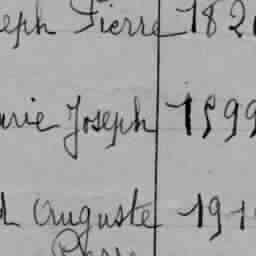 eph Pierre 182
arie Joseph 1899
d Auguste 191
Pierre